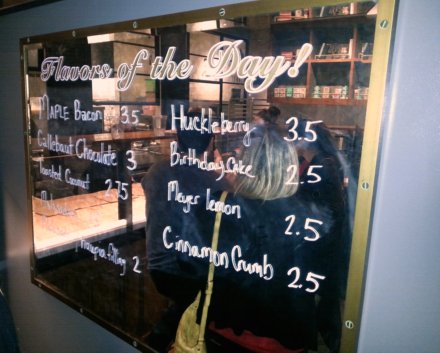 Flavors of the Day!
Maple Bacon 3.5
Callebaut Chocolate 3
Toasted Coconut 2.75
filling 2
Huckleberry 3.5
Birthday Cake 2.5
Meyer lemon 2.5
Cinnamon Crumb 2.5